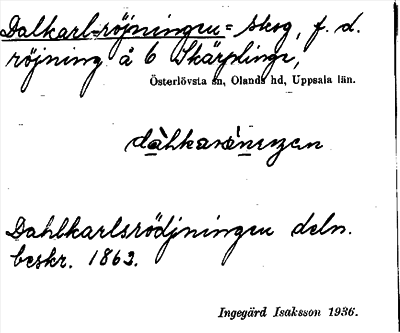 Dalkarlsröjningen = skog, f. d.
röjning å 6 Skärplinge,
Österlövsta sn, Olands hd, Uppsala län.
Dahlkarlsrödjningen deln.
beskr. 1863.
Ingegärd Isaksson 1936.